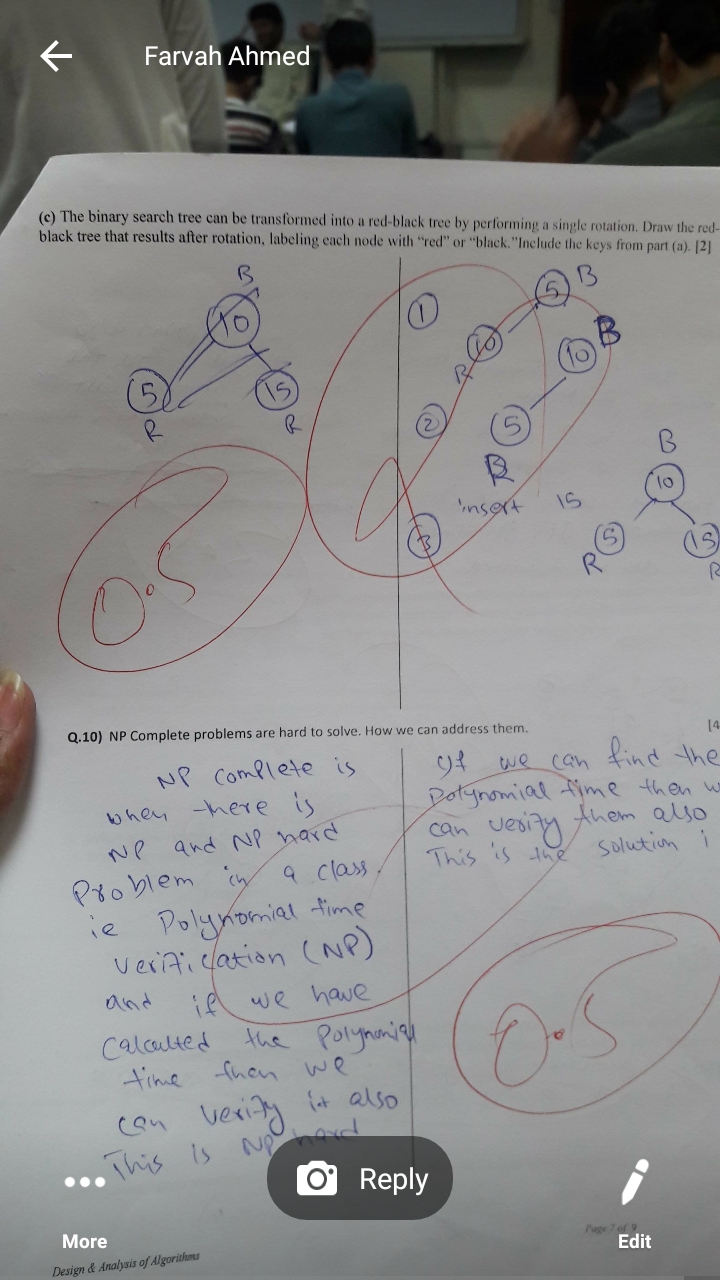 Farvah Ahmed
(c) The binary search tree can be transformed into a red-black tree by performing a single rotation. Draw the red-
black tree that results after rotation, labeling each node with “red” or “black.”Include the keys from part (a). [2]
B
10
5
15
R
R
1
5 B
10
R
10 B
2
5
R
insert 15
3
B
10
5
15
R
R
0.5
Q.10) NP Complete problems are hard to solve. How we can address them. [4
NP complete is
when there is
NP and NP hard
Problem in a class.
ie Polynomial time
verification (NP)
and if we have
Calculted the Polynomial
time then we
can verify it also
This is NP hard
If we can find the
Polynomial time then w
can verify them also
This is the solution i
0.5
Reply
More
Edit
Page 7 of 9
Design & Analysis of Algorithms